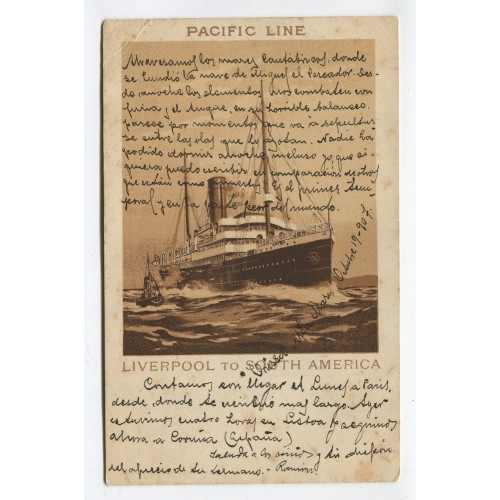 PACIFIC LINE
Atravesamos los mares Cantábricos, donde
se hundió la nave de Miguel el Pescador. Des-
de anoche los elementos nos combaten con
furia y el buque, en su horrible balanceo
parece por momentos que va a sepultar
se entre las olas que lo azotan. Nadie ha
podido dormir anoche incluso yo, que si-
quiera puedo escribir en comparación de otros
que están como muertos. Es el primer tem-
poral y en la parte peor del mundo.
Mar, Octubre 19-907.
LIVERPOOL TO SOUTH AMERICA
Contamos con llegar el Lunes a Paris,
desde donde se escribirá mas largo. Ayer
estuvimos cuatro horas en Lisboa y seguimos
ahora a Coruña (España)
Saluda a los niños y tú dispón
del aprecio de tu hermano.- Ramón